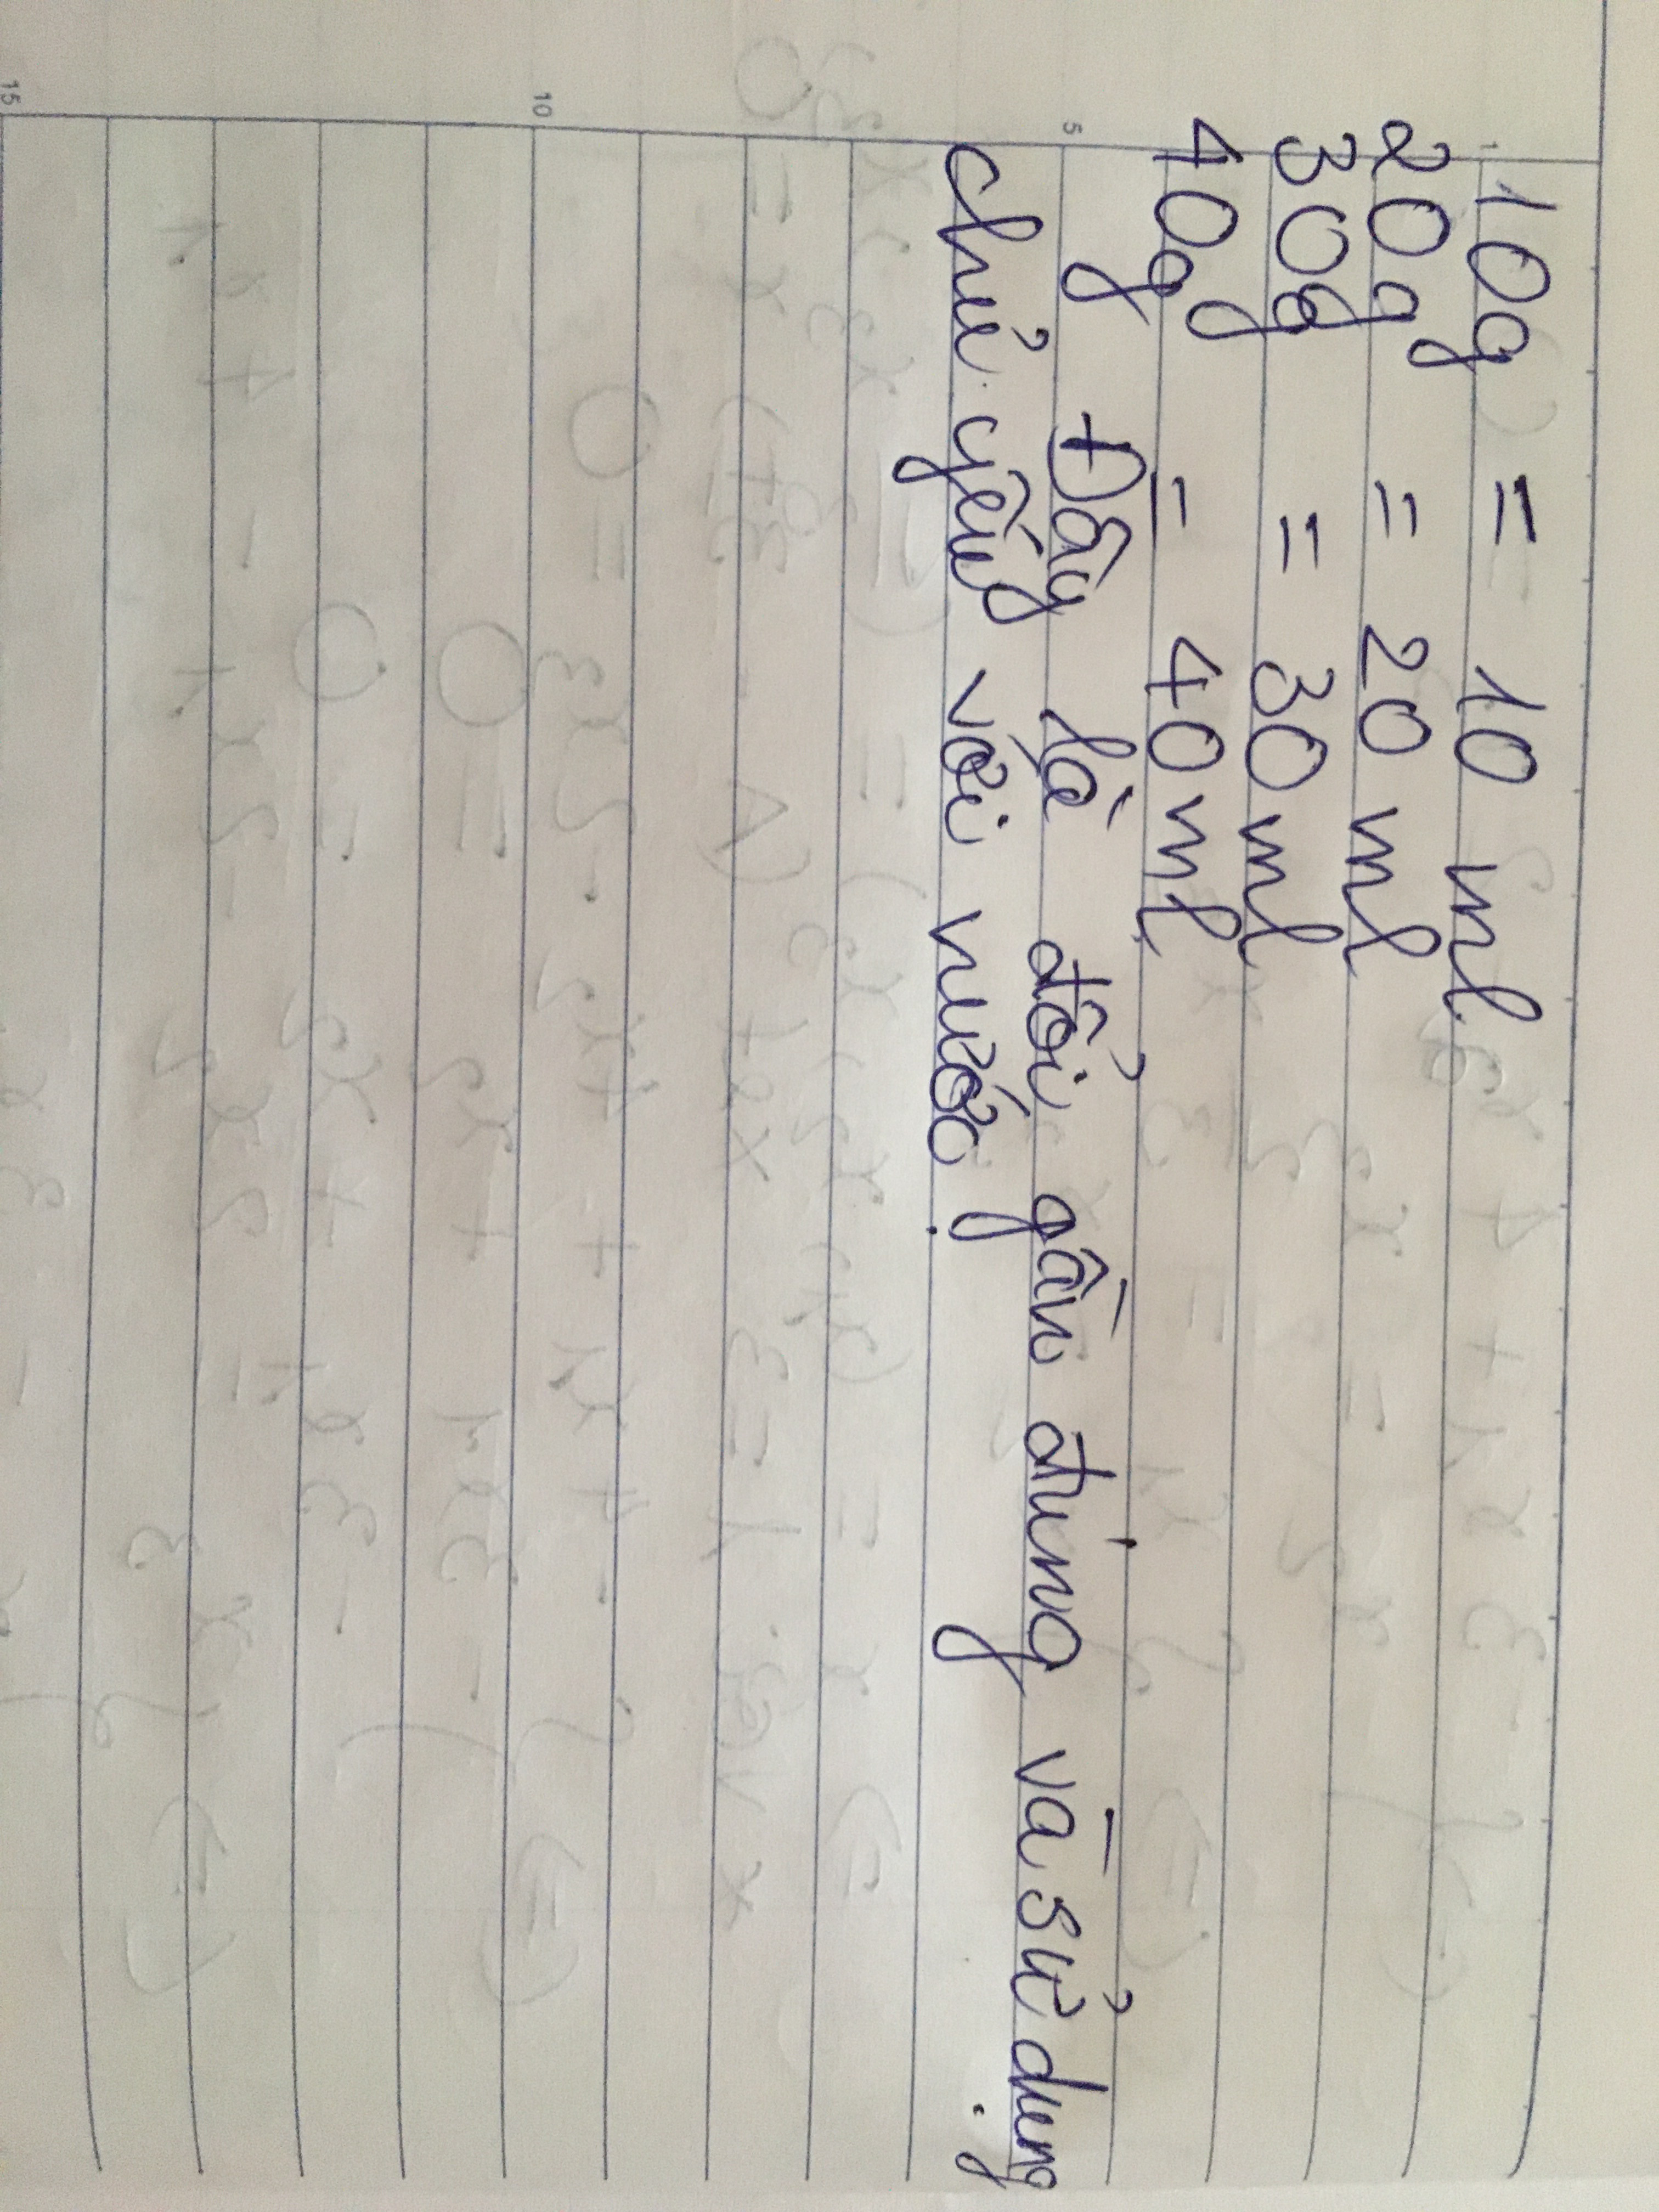 10g = 10 ml
20g = 20 ml
30g = 30 ml
40g = 40 ml
Đây là đổi gần đúng và sử dụng
chủ yếu với nước!
1
5
10
15